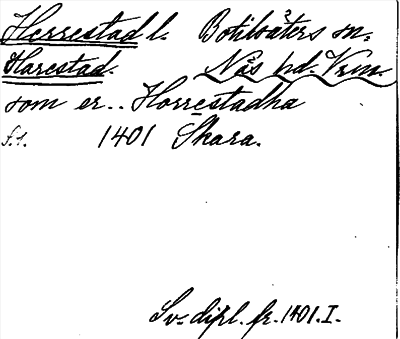 Herrestad l. Botilsäters sn.
Harestad. Näs hd. Vrm.
som er.. Horrestadha
s.1. 1401 Skara.
Sv. dipl. fr. 1401. I.